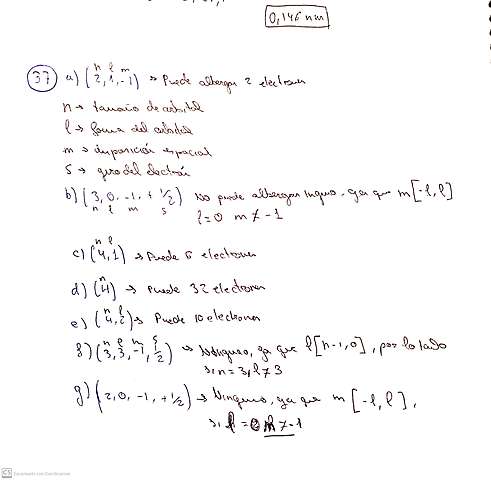 0,146 nm
37 a) (2, 1, -1) → Puede albergar 2 electrones
n l m
n → tamaño de orbital
l → forma del orbital
m → disposición espacial
s → giro del electrón
b) (3, 0, -1, +1/2) No puede albergar ninguno, ya que m [-l, l]
n l m s
l = 0 m ≠ -1
n l
c) (4, 1) → Puede 6 electrones
n
d) (4) → Puede 32 electrones
n l
e) (4, 2) → Puede 10 electrones
n l m s
f) (3, 3, -1, 1/2) → Ninguno, ya que l [n-1, 0], por lo tanto
si n = 3, l ≠ 3
g) (2, 0, -1, +1/2) → Ninguno, ya que m [-l, l],
si l = 0 m ≠ -1
CS